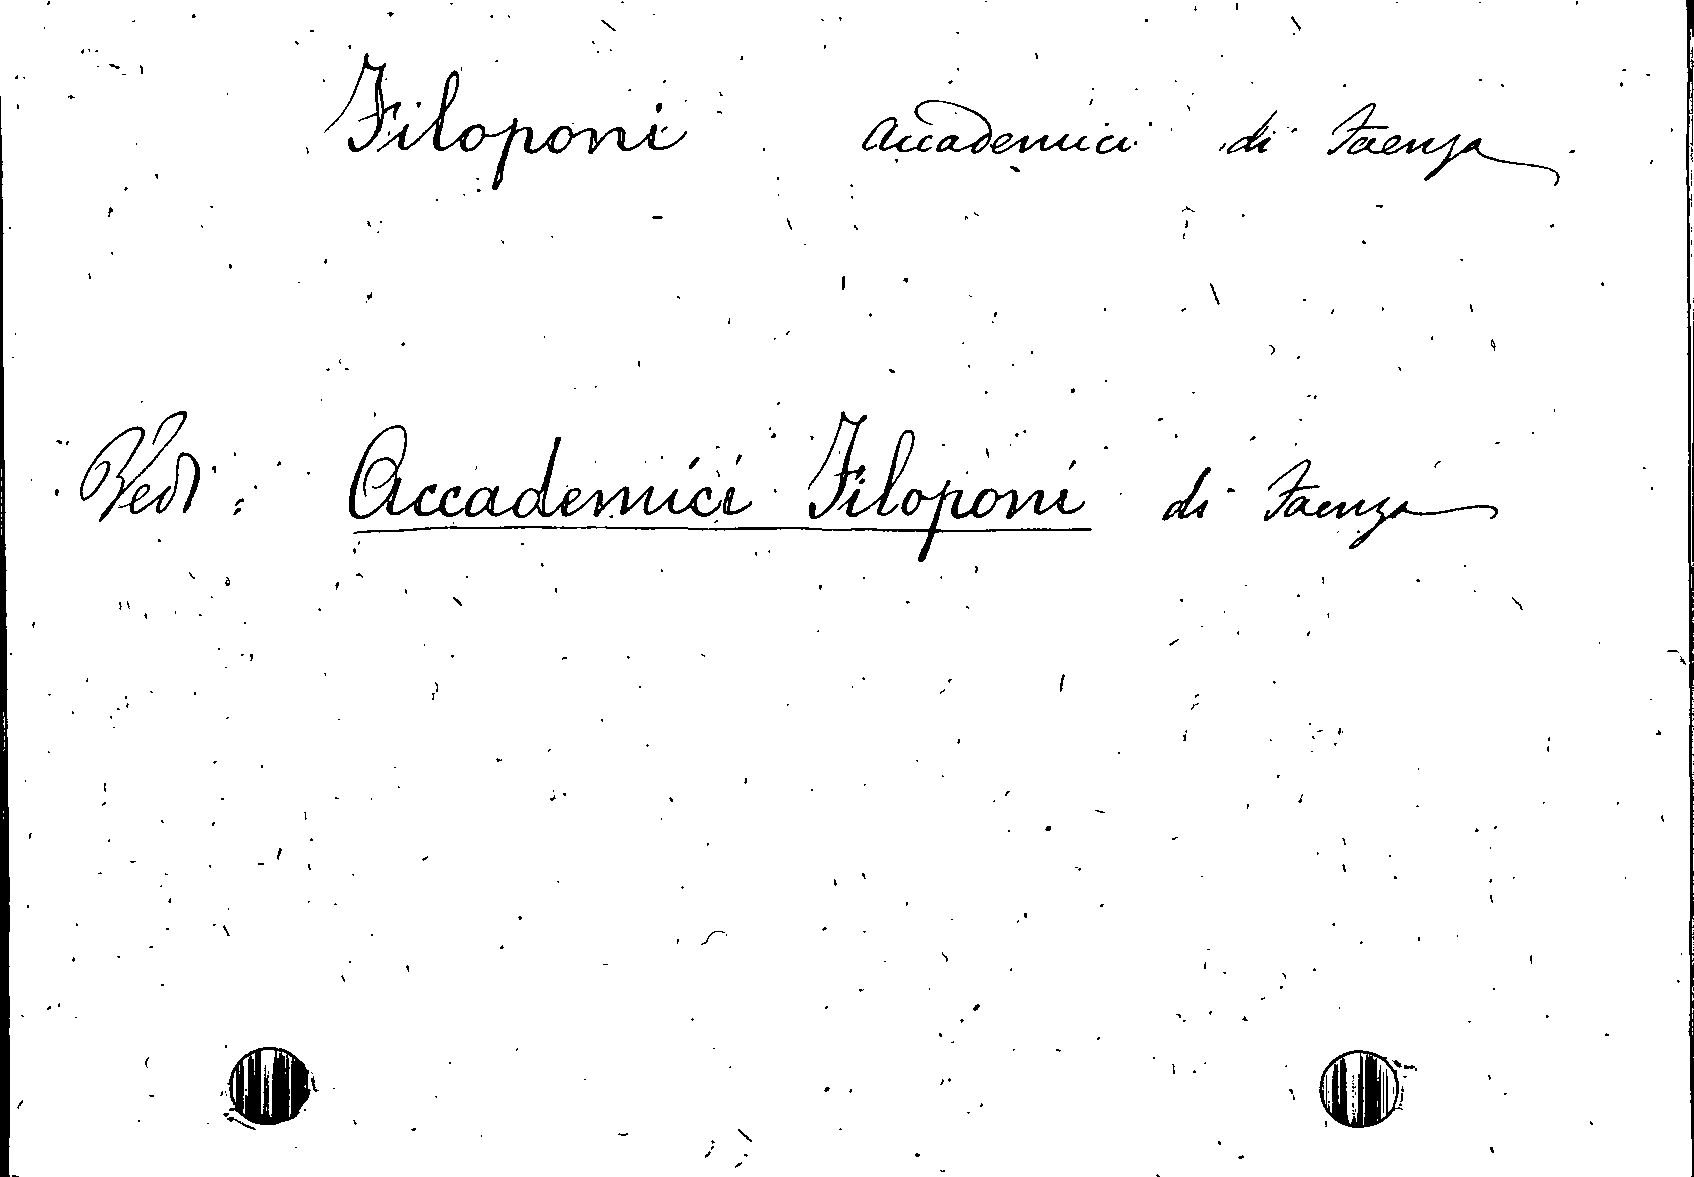 Filoponi accademici di Faenza
Vedi: Accademici Filoponi di Faenza